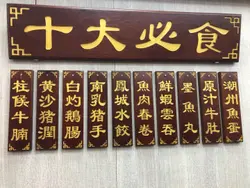 十大必食
柱候牛腩
黄沙猪潤
白灼鵝腸
南乳猪手
鳳城水餃
魚肉春卷
鮮蝦雲吞
墨魚丸
原汁牛肚
潮州魚蛋